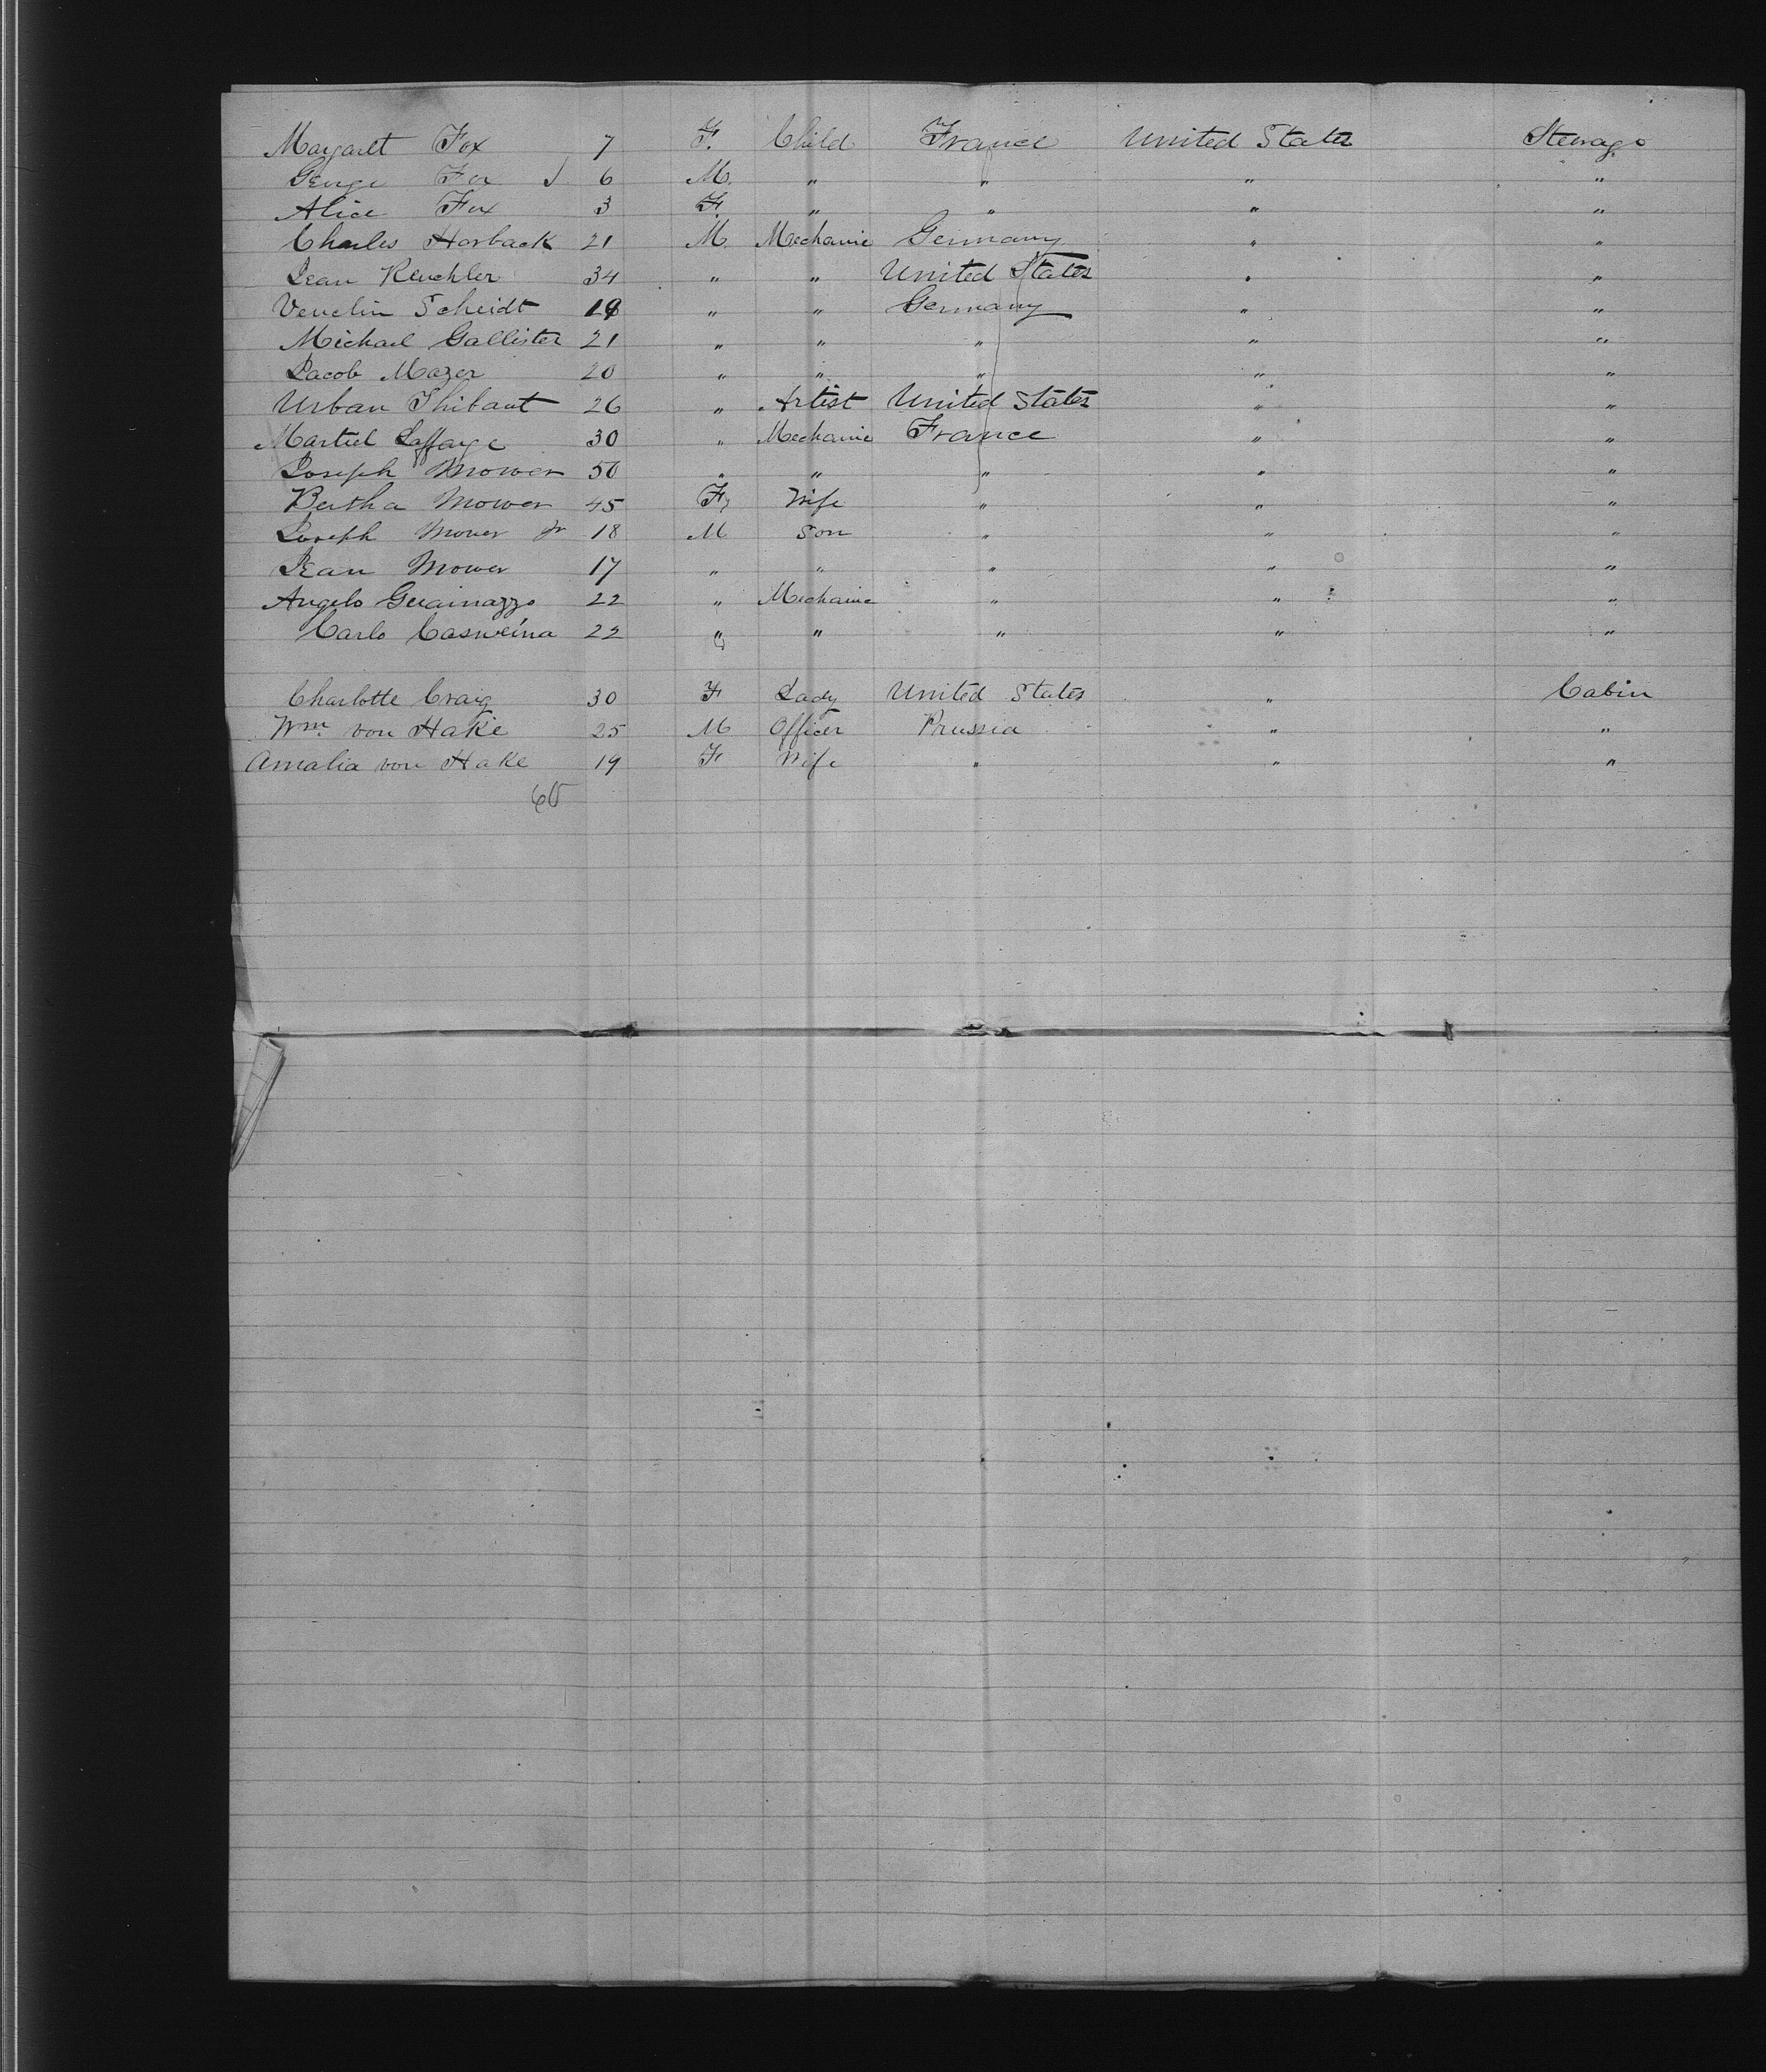 Margaret Fox 7 F. Child France United States Steerage
George Fox 6 M. " " " "
Alice Fox 3 F. " " " "
Charles Horback 21 M. Mechanic Germany " "
Jean Keuchler 34 " " United States " "
Venelin Scheidt " " Germany " "
Michael Gallister 21 " " " " "
Jacob Mazer 20 " " " " "
Urban Thibaut 26 " Artist United States " "
Martiel Laffarge 30 " Mechanic France " "
Joseph Mower 50 " " " " "
Bertha Mower 45 F. Wife " " "
Joseph Mower Jr 18 M Son " " "
Jean Mower 17 " " " " "
Angelo 22 " Mechanic " " "
Carlo Casweina 22 " " " " "
Charlotte Craig 30 F Lady United States " Cabin
Wm. von Hake 25 M Officer Prussia " "
Amalia von Hake 19 F Wife " " "